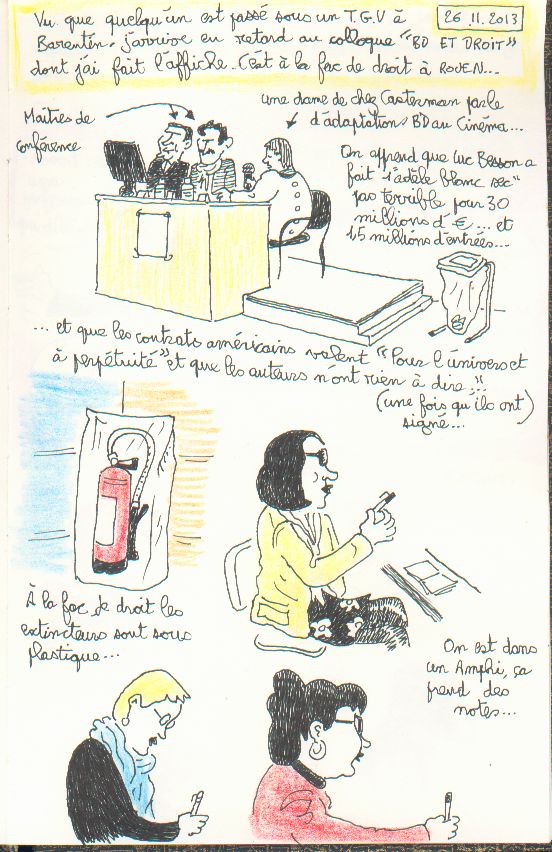 Vu que quelqu'un est passé sous un T.G.V à
26.11.2013
Barentin, j'arrive en retard au colloque "BD ET DROIT"
dont j'ai fait l'affiche. C'est à la fac de droit à ROUEN...
Maîtres de
conférence
une dame de chez Casterman parle
d'adaptations BD au Cinéma...
On apprend que Luc Besson a
fait "adèle blanc sec"
pas terrible pour 30
millions d'€... et
1,5 millions d'entrées...
... et que les contrats américains valent "Pour l'univers et
à perpétuité" et que les auteurs n'ont rien à dire...
(une fois qu'ils ont)
signé...
À la fac de droit les
extincteurs sont sous
plastique...
On est dans
un Amphi, ça
prend des
notes...